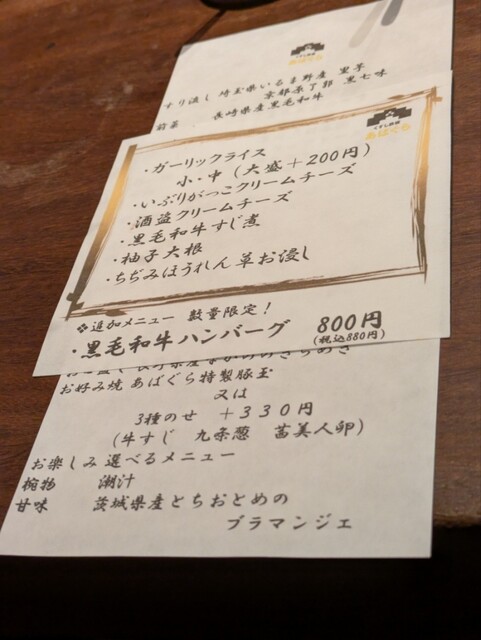 あばぐら
すり流し 埼玉県いるま野産 里芋
京都原了郭 黒七味
前菜 長崎県産黒毛和牛
くずし鉄板
あばぐら
・ガーリックライス
小・中(大盛+200円)
・いぶりがっこクリームチーズ
・酒盗クリームチーズ
・黒毛和牛すじ煮
・柚子大根
・ちぢみほうれん草お浸し
❖追加メニュー 数量限定!
・黒毛和牛ハンバーグ 800円
(税込880円)
お好み焼 あばぐら特製豚玉
又は
3種のせ +330円
(牛すじ 九条葱 茜美人卵)
お楽しみ 選べるメニュー
椀物 潮汁
甘味 茨城県産とちおとめの
ブラマンジェ